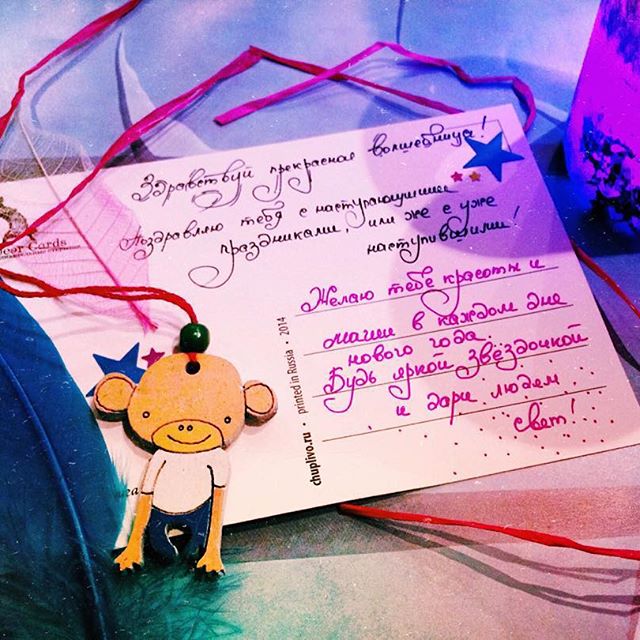 Здравствуй прекрасная волшебница!
Поздравляю тебя с наступающими
праздниками, или же с уже
наступившими!
Cards
Желаю тебе красоты и
магии в каждом дне
нового года
Будь яркой звёздочкой
и дари людям
свет!
chuplivo.ru • printed in Russia • 2014